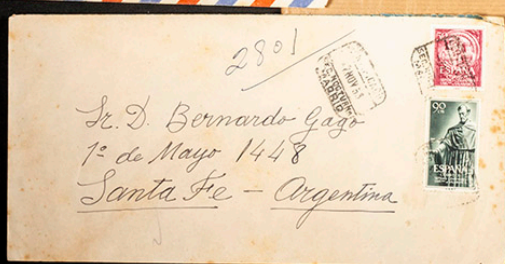 2801
NOV 54
MADRID
Sr. D. Bernardo Gago
1º de Mayo 1448
Santa Fe - Argentina
90
ESPAÑA